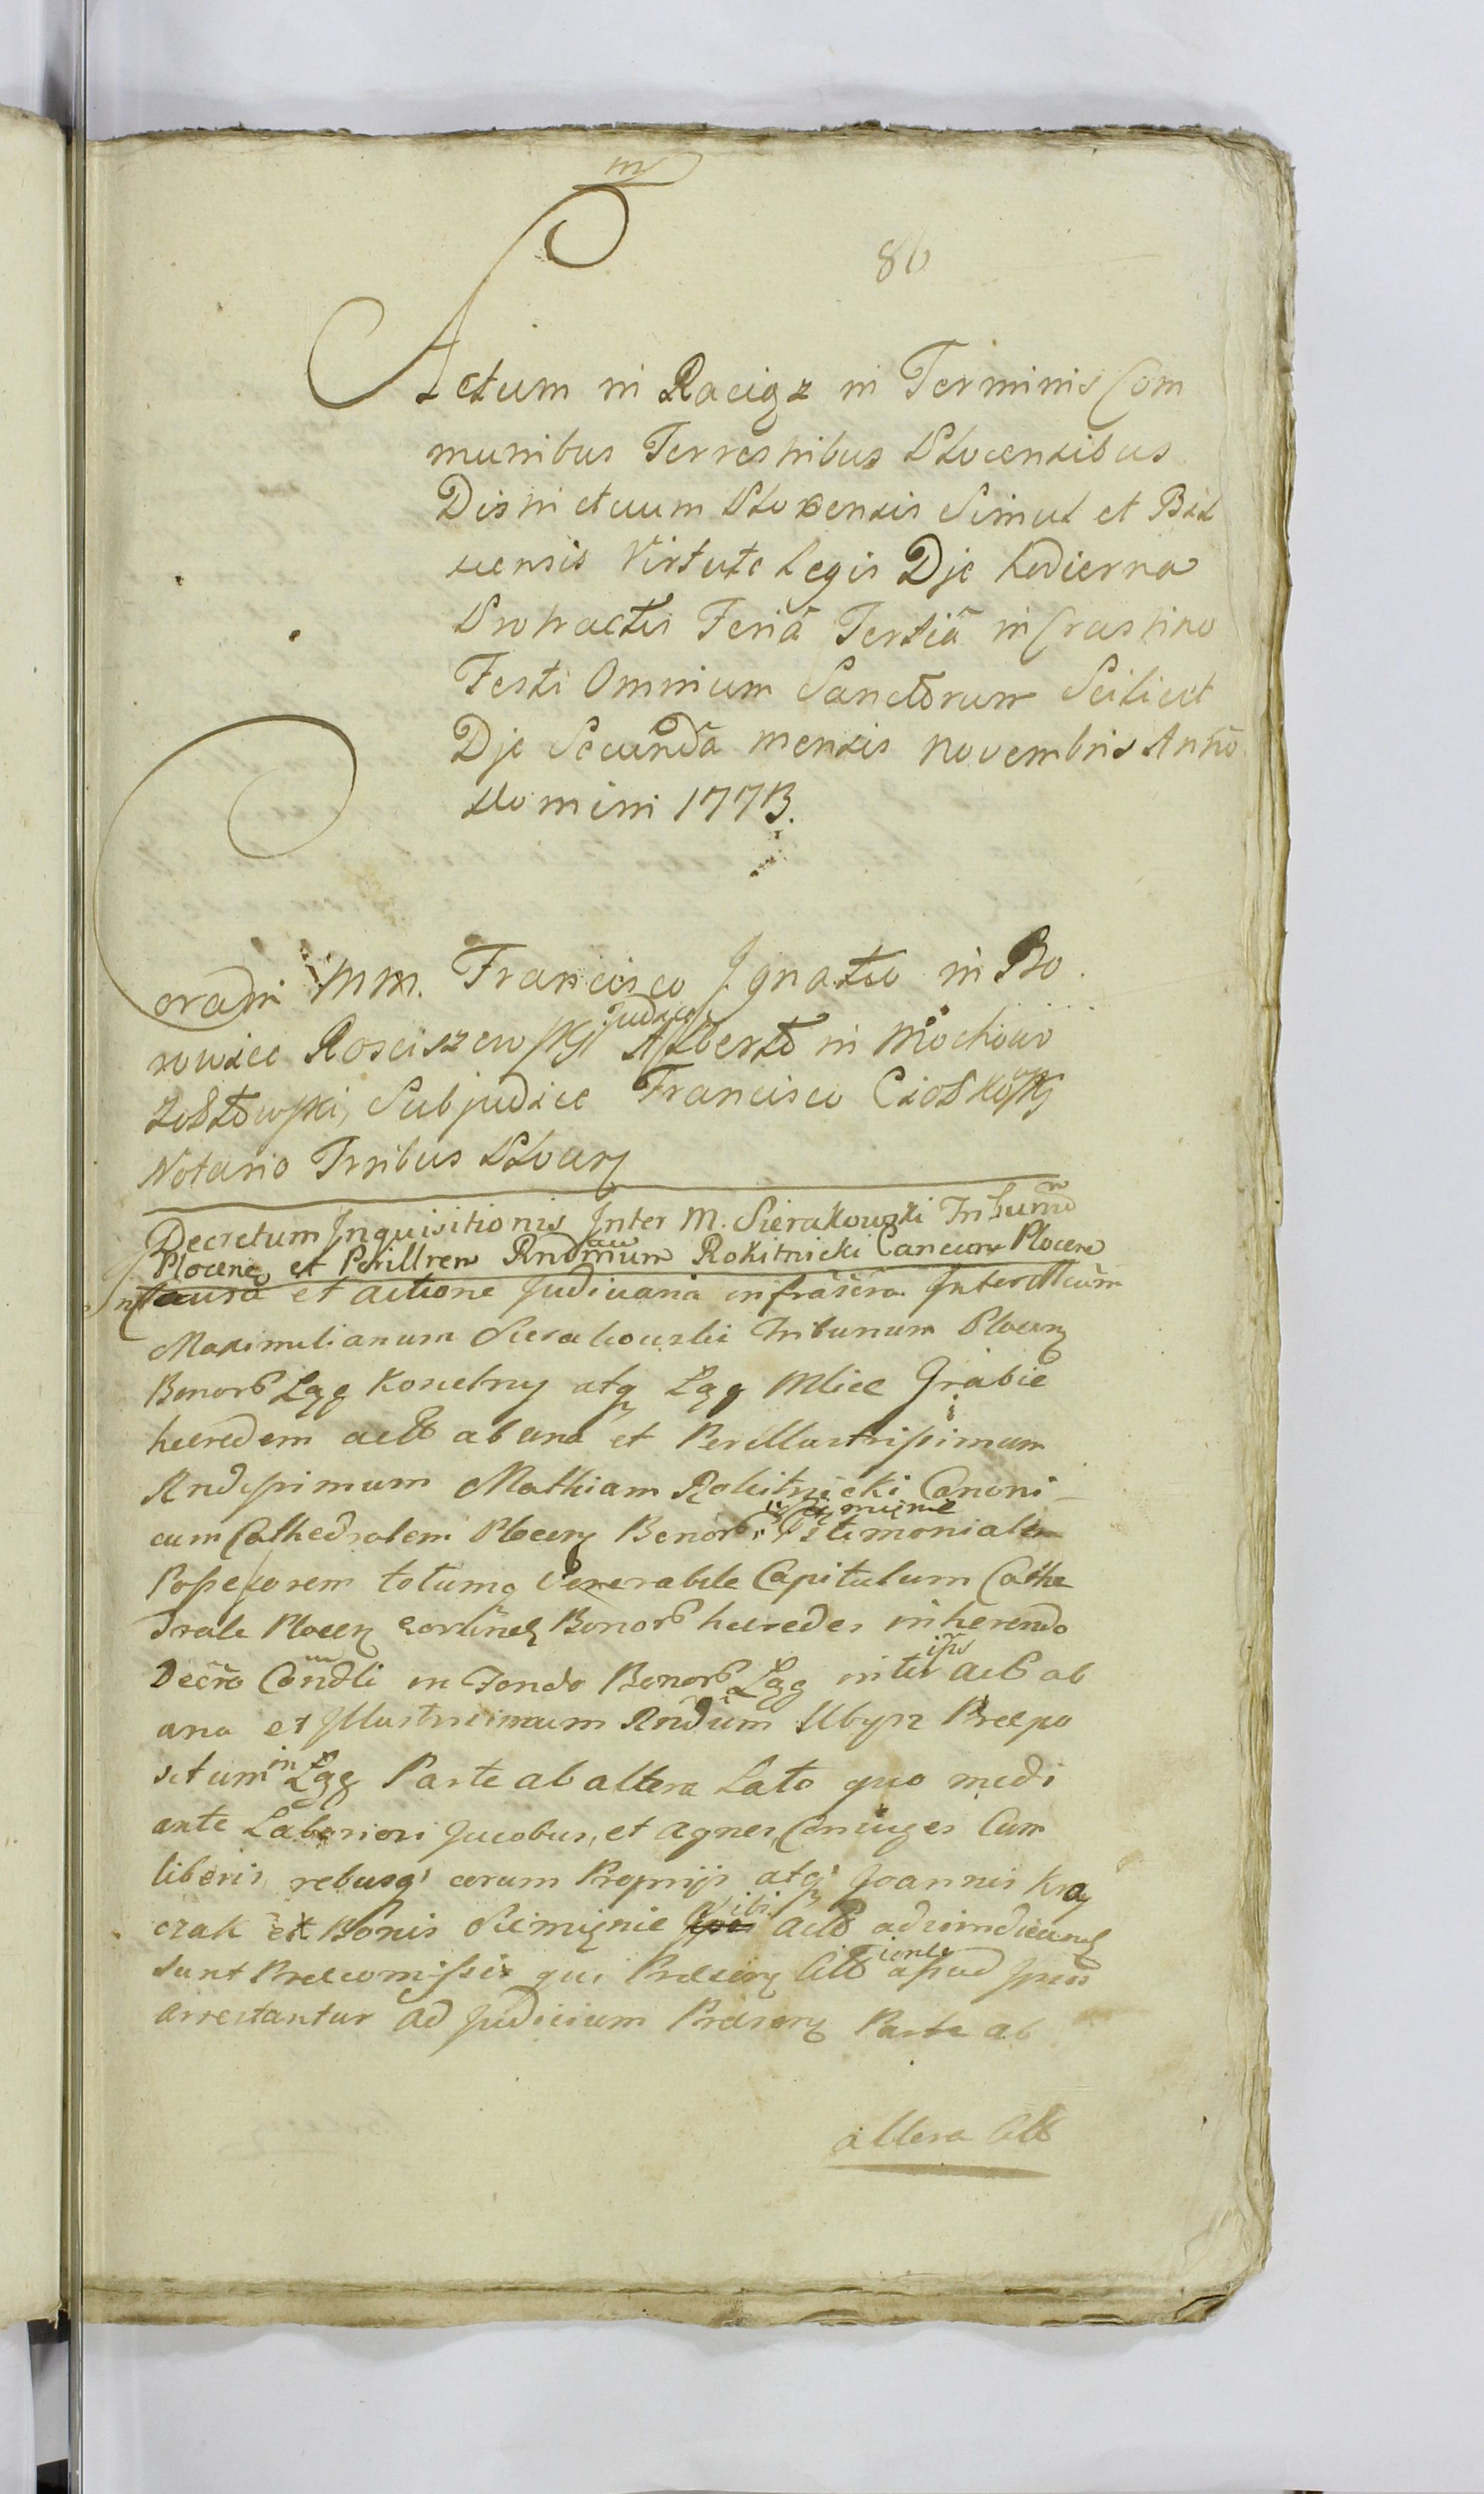 m
86
Actum in Raciąz in Terminis Com
munibus Terrestribus Plocensibus
Districtuum Plocensis Simul et Biel
scensis Virtute Legis Die hodierna
Protractis Feriâ Tertiâ in Crastino
Festi Omnium Sanctorum Scilicet
Die Secundâ mensis novembris Anno
Domini 1773.
Coram MM. Francisco Ignatio in Bo
rowice Rosciszewski Judice Alberto in Mochowo
Zołtowski, Subjudice Francisco Ciołkowski
Notario Trribus Plocen
Decretum Inquisitionis Inter M. Sierakowski Tribunum
Plocen et Perillrem Rndmum Rokitnicki Cancum Plocen
In causa et actione Judiciaria infrascra Inter Mcum
Maximilianum Sierakowski Tribunum Plocen
Bonor Łęg Koscielny atq Łęg Mlice Grabie
heredem act ab una et Perillustrissimum
Rndissimum Mathiam Rokitnicki Canoni
cum Cathedralem Plocen Bonor Siemięnie Testimonialem
Possessorem totumq Venerabile Capitulum Cathe
drale Plocen eorundem Bonor heredes inherendo
Decro Condli in Fondo Bonor Łęg inter ips act ab
una et Illustrissimum Rndum Præpo
situm in Łęg Parte ab altera Lato quo medi
ante Laboriosi Jacobus, et Agnes Coniuges Cum
liberis rebusq eorum Proprijs atq Joannis Kray
czak et Bonis Siemięnie ibi act adjudicand
sunt Præcomissis qui Præsen apud
arrestantur ad Judicium Præsens Parte ab
altera Act